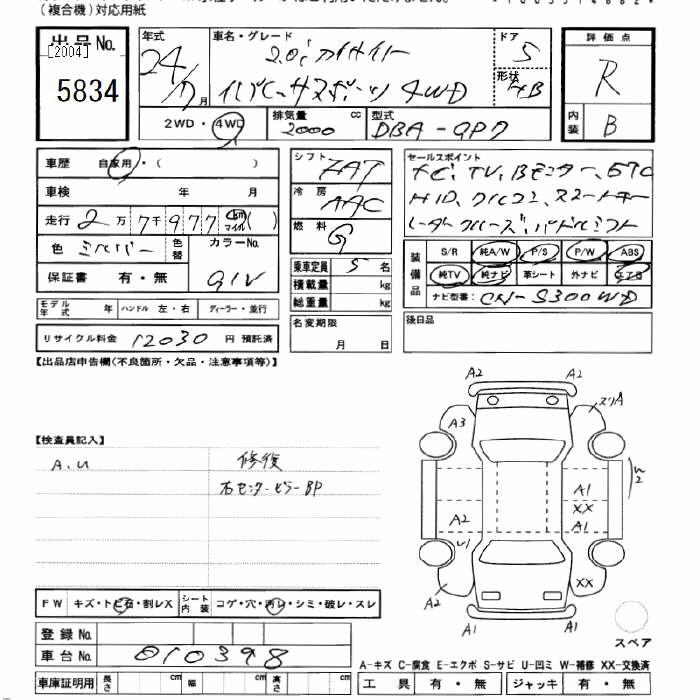 (複合機)対応用紙
出品No.
[2004]
5834
年式
24/7月
車名・グレード
2.0i アイサイト
インプレッサスポーツ 4WD
ドア
5
形状
HB
評価点
R
内装
B
2WD・4WD
排気量
2000 cc
型式
DBA-GP7
車歴 自家用・( )
車検 年 月
走行 2万7千977 km マイル( )
色 シルバー
色替
カラーNo.
G1V
保証書 有・無
シフト
FAT
冷房
AAC
燃料
G
乗車定員 5名
積載量 kg
総重量 kg
名変期限
月 日
セールスポイント
ナビ、TV、Bモニター、ETC
HID、クルコン、スマートキー
レーダークルーズ、パドルシフト
装備品
S/R 純A/W P/S P/W ABS
純TV 純ナビ 革シート 外ナビ エアB
ナビ型番: CN-S300WD
後日品
モデル年式 年 ハンドル 左・右 ディーラー・並行
リサイクル料金 12030 円 預託済
【出品店申告欄(不良箇所・欠品・注意事項等)】
【検査員記入】
A.U
修復
右センターピラーBP
FW キズ・トビ石・割レX
シート内装 コゲ・穴・汚レ・シミ・破レ・スレ
登録No.
車台No. 010398
車庫証明用 長さ cm 幅 cm 高さ cm
A2 A2
A3
スリA
W2
A1
XX
A1
A2
U1
A2
XX
A1 A1
スペア
A-キズ C-腐食 E-エクボ S-サビ U-凹ミ W-補修 XX-交換済
工具 有・無 ジャッキ 有・無